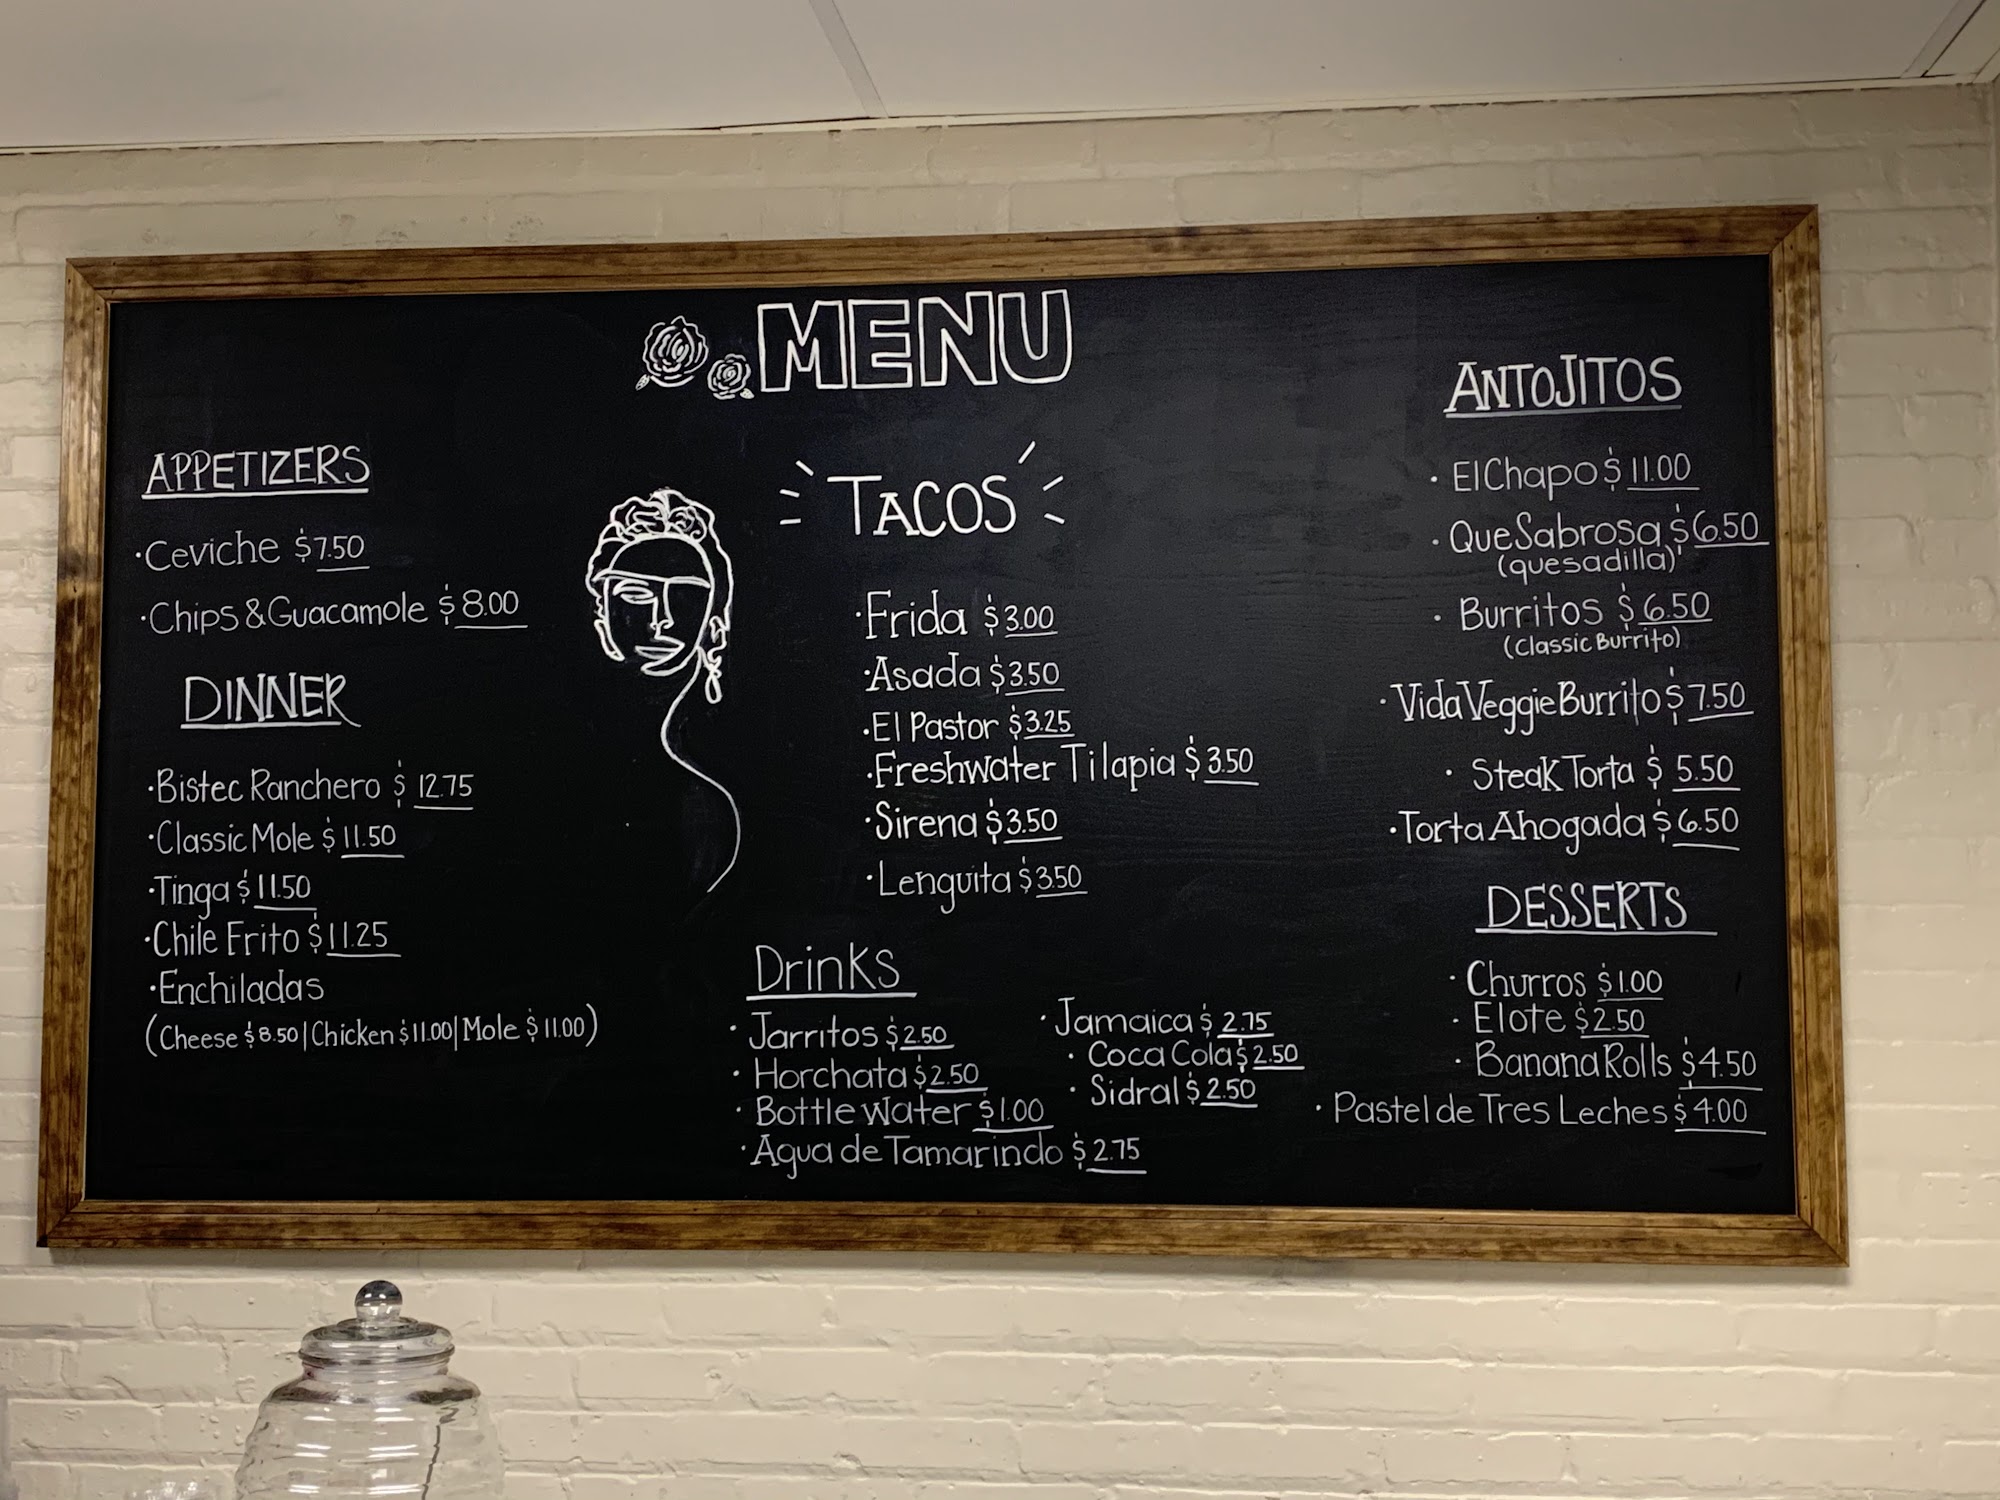 MENU
APPETIZERS
·Ceviche $7.50
·Chips & Guacamole $8.00
DINNER
·Bistec Ranchero $12.75
·Classic Mole $11.50
·Tinga $11.50
·Chile Frito $11.25
·Enchiladas
(Cheese $8.50|Chicken $11.00|Mole $11.00)
TACOS
·Frida $3.00
·Asada $3.50
·El Pastor $3.25
·Freshwater Tilapia $3.50
·Sirena $3.50
·Lenguita $3.50
Drinks
·Jarritos $2.50
·Horchata $2.50
·Bottle Water $1.00
·Agua de Tamarindo $2.75
·Jamaica $2.75
·Coca Cola $2.50
·Sidral $2.50
ANTOJITOS
·El Chapo $11.00
·QueSabrosa $6.50
(quesadilla)
·Burritos $6.50
(Classic Burrito)
·Vida Veggie Burrito $7.50
·Steak Torta $5.50
·Torta Ahogada $6.50
DESSERTS
·Churros $1.00
·Elote $2.50
·Banana Rolls $4.50
·Pastel de Tres Leches $4.00